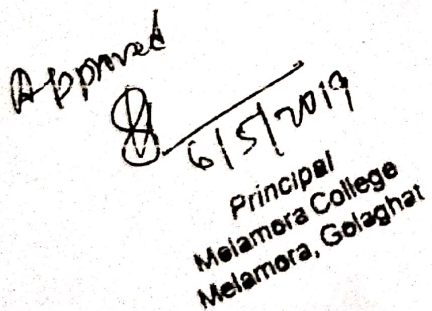 Approved
6/5/2019
Principal
Melamora College
Melamora, Golaghat